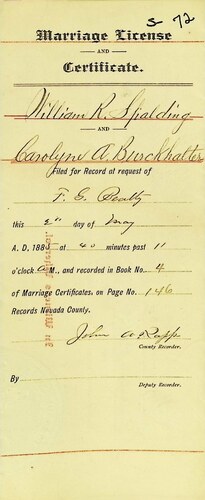 S 72
Marriage License
AND
Certificate.
William K. Spalding
AND
Carolyne A. Burckhalter
Filed for Record at request of
F. G. Beatty
this 2" day of May
A. D. 188 at 40 minutes past 11
o'clock A M., and recorded in Book No. 4
of Marriage Certificates, on Page No. 146
Records Nevada County.
John A Rapp
County Recorder.
By
Deputy Recorder.